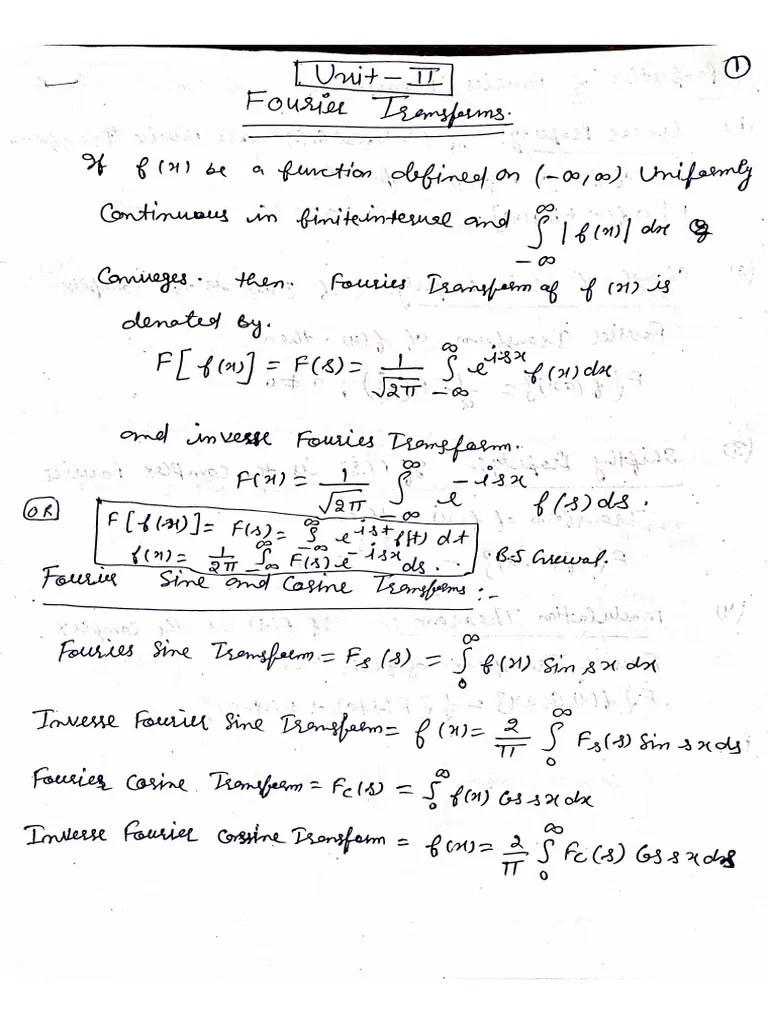 ①
Unit - II
Fourier Transforms.
If f(x) be a function, defined on (-∞,∞) Uniformly
Continuous in finite interval and ∫_{-∞}^{∞} |f(x)| dx
Converges. then. Fourier Transform of f(x) is
denoted by.
F[f(x)] = F(s) = 1/√2π ∫_{-∞}^{∞} e^{isx} f(x) dx
and inverse Fourier Transform.
F(x) = 1/√2π ∫_{-∞}^{∞} e^{-isx} f(s) ds.
OR
F[f(x)] = F(s) = ∫_{-∞}^{∞} e^{ist} f(t) dt
f(x) = 1/2π ∫_{-∞}^{∞} F(s) e^{-isx} ds... B.S Grewal.
Fourier Sine and Cosine Transforms :-
Fourier Sine Transform = F_s(s) = ∫_0^∞ f(x) Sin sx dx
Inverse Fourier Sine Transform = f(x) = 2/π ∫_0^∞ F_s(s) Sin sx ds
Fourier Cosine Transform = F_c(s) = ∫_0^∞ f(x) Cos sx dx
Inverse Fourier Cossine Transform = f(x) = 2/π ∫_0^∞ F_c(s) Cos sx ds